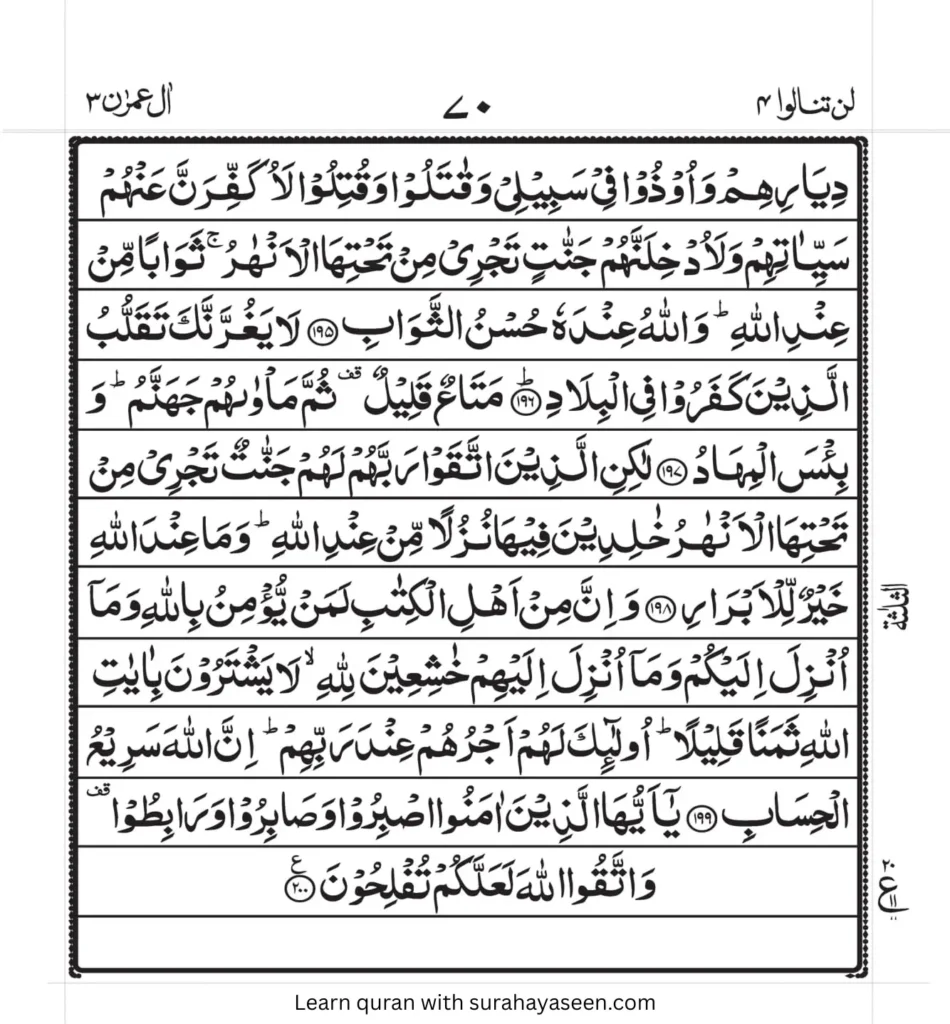 لن تنالوا ۴ ۷۰ اٰل عمرٰن ۳
دِيَارِهِمْ وَاُوْذُوْا فِيْ سَبِيْلِيْ وَقٰتَلُوْا وَقُتِلُوْا لَاُكَفِّرَنَّ عَنْهُمْ
سَيِّاٰتِهِمْ وَلَاُدْخِلَنَّهُمْ جَنّٰتٍ تَجْرِيْ مِنْ تَحْتِهَا الْاَنْهٰرُ ۚ ثَوَابًا مِّنْ
عِنْدِ اللّٰهِ ؕ وَاللّٰهُ عِنْدَهٗ حُسْنُ الثَّوَابِ ۝۱۹۵ لَا يَغُرَّنَّكَ تَقَلُّبُ
الَّذِيْنَ كَفَرُوْا فِي الْبِلَادِ ؕ۝۱۹۶ مَتَاعٌ قَلِيْلٌ قف ثُمَّ مَاْوٰىهُمْ جَهَنَّمُ ؕ وَ
بِئْسَ الْمِهَادُ ۝۱۹۷ لٰكِنِ الَّذِيْنَ اتَّقَوْا رَبَّهُمْ لَهُمْ جَنّٰتٌ تَجْرِيْ مِنْ
تَحْتِهَا الْاَنْهٰرُ خٰلِدِيْنَ فِيْهَا نُزُلًا مِّنْ عِنْدِ اللّٰهِ ؕ وَمَا عِنْدَ اللّٰهِ
خَيْرٌ لِّلْاَبْرَارِ ۝۱۹۸ وَاِنَّ مِنْ اَهْلِ الْكِتٰبِ لَمَنْ يُّؤْمِنُ بِاللّٰهِ وَمَاۤ
الثلٰثة
اُنْزِلَ اِلَيْكُمْ وَمَاۤ اُنْزِلَ اِلَيْهِمْ خٰشِعِيْنَ لِلّٰهِ ۙ لَا يَشْتَرُوْنَ بِاٰيٰتِ
اللّٰهِ ثَمَنًا قَلِيْلًا ؕ اُولٰٓئِكَ لَهُمْ اَجْرُهُمْ عِنْدَ رَبِّهِمْ ؕ اِنَّ اللّٰهَ سَرِيْعُ
الْحِسَابِ ۝۱۹۹ يٰۤاَيُّهَا الَّذِيْنَ اٰمَنُوا اصْبِرُوْا وَصَابِرُوْا وَرَابِطُوْا قف
وَاتَّقُوا اللّٰهَ لَعَلَّكُمْ تُفْلِحُوْنَ ۝۲۰۰ ع
۲۰
ع
۱۱
Learn quran with surahayaseen.com